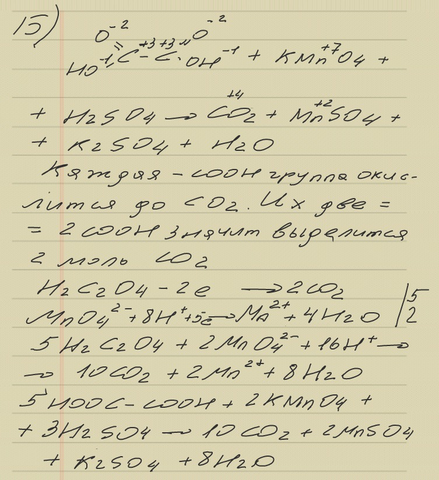 15)
O⁻² O⁻²
HO⁻¹ C⁺³-C⁺³ OH⁻¹ + KMn⁺⁷O4 +
+ H2SO4 → C⁺⁴O2 + Mn⁺²SO4 +
+ K2SO4 + H2O
Каждая -COOH группа окис-
лится до CO2. Их две =
= 2 COOH значит выделится
2 моль CO2
H2C2O4 - 2e → 2CO2 | 5
MnO4²⁻ + 8H⁺ + 5e → Mn²⁺ + 4H2O | 2
5H2C2O4 + 2MnO4²⁻ + 16H⁺ →
→ 10CO2 + 2Mn²⁺ + 8H2O
5HOOC-COOH + 2KMnO4 +
+ 3H2SO4 → 10CO2 + 2MnSO4
+ K2SO4 + 8H2O